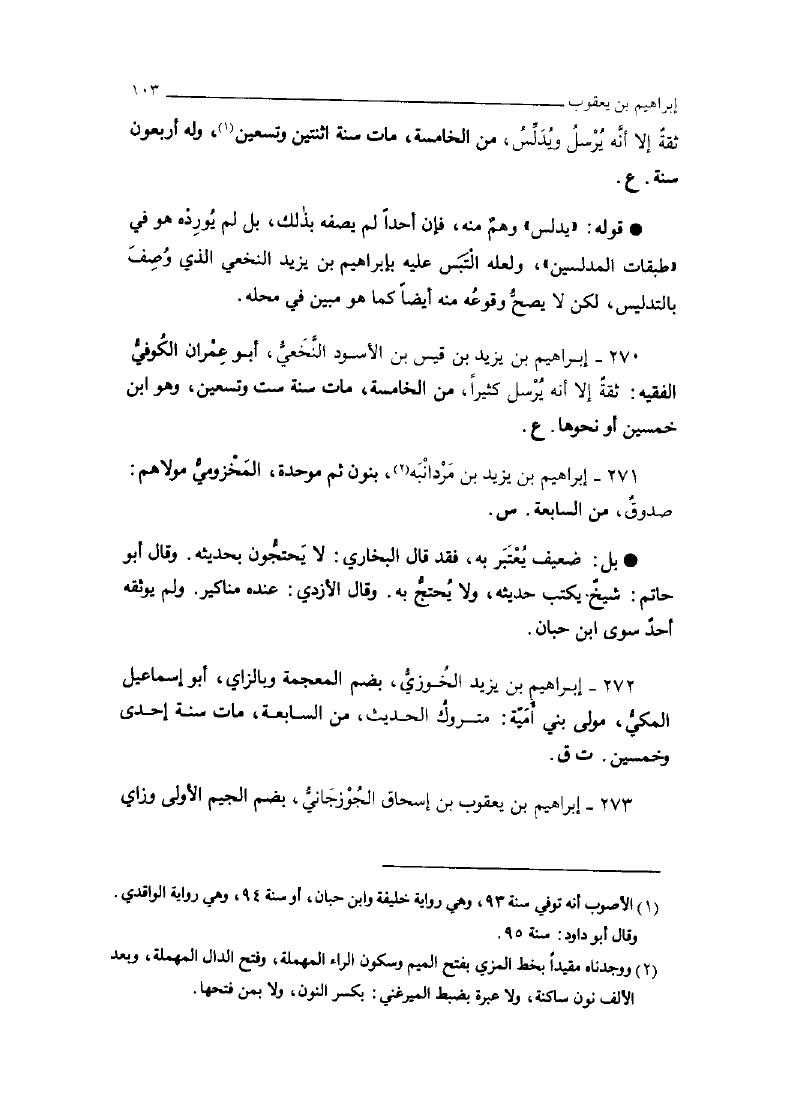 إبراهيم بن يعقوب ١٠٣
ثقةٌ إلا أنَّه يُرْسلُ ويُدَلِّسُ، من الخامسة، مات سنة اثنتين وتسعين(١)، وله أربعون
سنة. ع.
● قوله: «يدلس» وهمٌ منه، فإن أحداً لم يصفه بذلك، بل لم يُورِدْه هو في
«طبقات المدلسين»، ولعله الْتَبَس عليه بإبراهيم بن يزيد النخعي الذي وُصِفَ
بالتدليس، لكن لا يصحُّ وقوعُه منه أيضاً كما هو مبين في محله.
٢٧٠ ـ إبراهيم بن يزيد بن قيس بن الأسود النَّخَعيُّ، أبو عِمْران الكُوفيُّ
الفقيه: ثقةٌ إلا أنه يُرْسل كثيراً، من الخامسة، مات سنة ست وتسعين، وهو ابن
خمسين أو نحوها. ع.
٢٧١ ـ إبراهيم بن يزيد بن مَرْدانْبَه(٢)، بنون ثم موحدة، المَخْزوميُّ مولاهم:
صدوقٌ، من السابعة. س.
● بل: ضعيف يُعْتَبَر به، فقد قال البخاري: لا يَحتجُّون بحديثه. وقال أبو
حاتم: شيخٌ يكتب حديثه، ولا يُحتجُّ به. وقال الأزدي: عنده مناكير. ولم يوثقه
أحدٌ سوى ابن حبان.
٢٧٢ ـ إبراهيم بن يزيد الخُوزيُّ، بضم المعجمة وبالزاي، أبو إسماعيل
المكيُّ، مولى بني أُمَيّة: متروكُ الحديث، من السابعة، مات سنة إحدى
وخمسين. ت ق.
٢٧٣ ـ إبراهيم بن يعقوب بن إسحاق الجُوْزجَانيُّ، بضم الجيم الأولى وزاي
(١) الأصوب أنه توفي سنة ٩٣، وهي رواية خليفة وابن حبان، أو سنة ٩٤، وهي رواية الواقدي.
وقال أبو داود: سنة ٩٥.
(٢) ووجدناه مقيداً بخط المزي بفتح الميم وسكون الراء المهملة، وفتح الدال المهملة، وبعد
الألف نون ساكنة، ولا عبرة بضبط الميرغني: بكسر النون، ولا بمن فتحها.